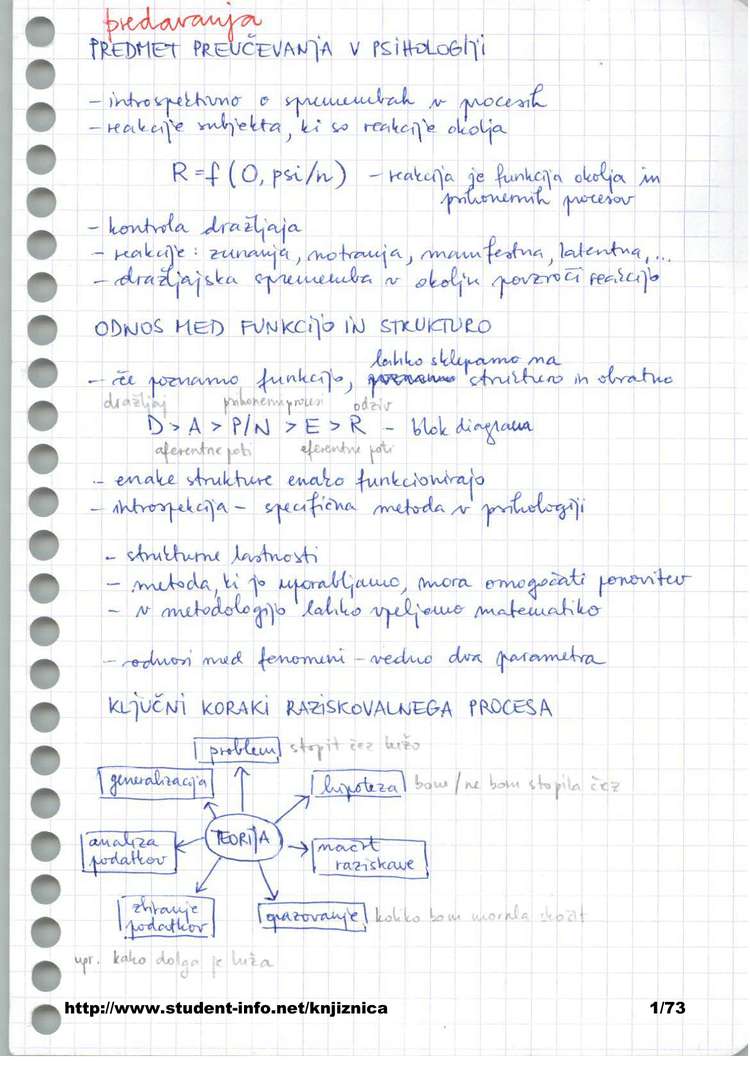 predavanja
PREDMET PREUČEVANJA V PSIHOLOGIJI
- introspektivno o spremembah v procesih
- reakcije subjekta, ki so reakcije okolja
R = f (O, psi/n) - reakcija je funkcija okolja in
psihonevrnih procesov
- kontrola dražljaja
- reakcije: zunanja, notranja, manifestna, latentna, ...
- dražljajska sprememba v okolju povzroči reakcijo
ODNOS MED FUNKCIJO IN STRUKTURO
lahko sklepamo na
- če poznamo funkcijo, strukturo in obratno
dražljaj psihonevrni procesi odziv
D > A > P/N > E > R - blok diagrama
aferentne poti eferentne poti
- enake strukture enako funkcionirajo
- introspekcija - specifična metoda v psihologiji
- strukturne lastnosti
- metoda, ki jo uporabljamo, mora omogočati ponovitev
- v metodologijo lahko vpeljemo matematiko
- odnosi med fenomeni - vedno dva parametra
KLJUČNI KORAKI RAZISKOVALNEGA PROCESA
problem stopit čez lužo
generalizacija hipoteza bom / ne bom stopila čez
analiza podatkov TEORIJA načrt raziskave
zbiranje podatkov opazovanje koliko bom morala skočit
npr. kako dolga je luža
http://www.student-info.net/knjiznica 1/73